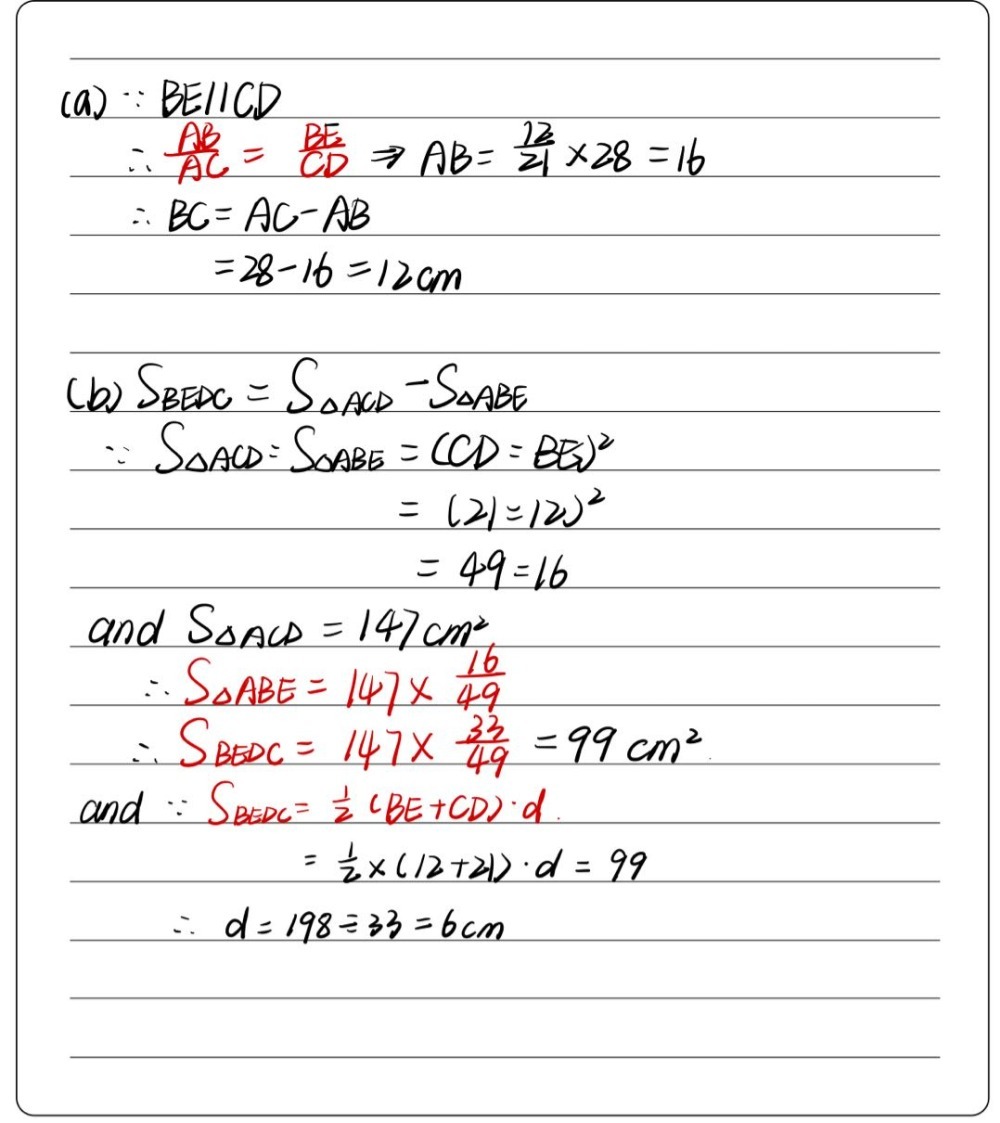 (a) ∵ BE∥CD
∴ AB/AC = BE/CD ⇒ AB = 12/21 × 28 = 16
∴ BC = AC - AB
= 28 - 16 = 12 cm
(b) S_BEDC = S_△ACD - S_△ABE
∵ S_△ACD : S_△ABE = (CD : BE)²
= (21 : 12)²
= 49 : 16
and S_△ACD = 147 cm²
∴ S_△ABE = 147 × 16/49
∴ S_BEDC = 147 × 33/49 = 99 cm².
and ∵ S_BEDC = 1/2 (BE + CD) · d.
= 1/2 × (12 + 21) · d = 99
∴ d = 198 ÷ 33 = 6 cm